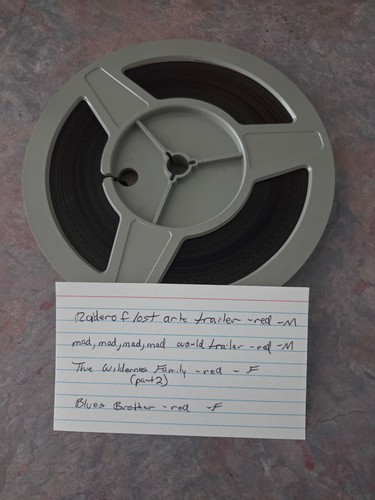 Raider of lost ark trailer -red -M
mad, mad, mad, mad would trailer -red -M
The Wilderness Family -red - F
(part 2)
Blues Brother -red -F